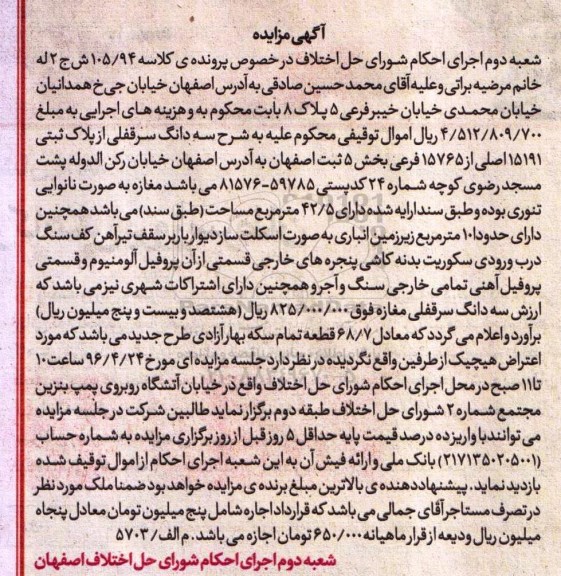 آگهی مزایده
شعبه دوم اجرای احکام شورای حل اختلاف در خصوص پرونده ی کلاسه ۱۰۵/۹۴ ش ج ۲ له
خانم مرضیه براتی و علیه آقای محمد حسین صادقی به آدرس اصفهان خیابان جی خ همدانیان
خیابان محمدی خیابان خیبر فرعی ۵ پلاک ۸ بابت محکوم به و هزینه های اجرایی به مبلغ
۴/۵۱۲/۸۰۹/۷۰۰ ریال اموال توقیفی محکوم علیه به شرح سه دانگ سرقفلی از پلاک ثبتی
۱۵۱۹۱ اصلی از ۱۵۷۶۵ فرعی بخش ۵ ثبت اصفهان به آدرس اصفهان خیابان رکن الدوله پشت
مسجد رضوی کوچه شماره ۲۴ کدپستی ۵۹۷۸۵-۸۱۵۷۶ می باشد مغازه به صورت نانوایی
تنوری بوده و طبق سند ارایه شده دارای ۴۲/۵ مترمربع مساحت (طبق سند) می باشد همچنین
دارای حدودا ۱۰ مترمربع زیرزمین انباری به صورت اسکلت ساز دیوار باربر سقف تیرآهن کف سنگ
درب ورودی سکوریت بدنه کاشی پنجره های خارجی قسمتی از آن پروفیل آلومنیوم و قسمتی
پروفیل آهنی تمامی خارجی سنگ و آجر و همچنین دارای اشتراکات شهری نیز می باشد که
ارزش سه دانگ سرقفلی مغازه فوق ۸۲۵/۰۰۰/۰۰۰ ریال (هشتصد و بیست و پنج میلیون ریال)
برآورد و اعلام می گردد که معادل ۶۸/۷ قطعه تمام سکه بهار آزادی طرح جدید می باشد که مورد
اعتراض هیچیک از طرفین واقع نگردیده در نظر دارد جلسه مزایده ای مورخ ۹۶/۴/۲۴ ساعت ۱۰
تا ۱۱ صبح در محل اجرای احکام شورای حل اختلاف واقع در خیابان آتشگاه روبروی پمپ بنزین
مجتمع شماره ۲ شورای حل اختلاف طبقه دوم برگزار نماید طالبین شرکت در جلسه مزایده
می توانند با واریز ده درصد قیمت پایه حداقل ۵ روز قبل از روز برگزاری مزایده به شماره حساب
(۲۱۷۱۳۵۰۲۰۵۰۰۱) بانک ملی و ارائه فیش آن به این شعبه اجرای احکام از اموال توقیف شده
بازدید نماید. پیشنهاد دهنده ی بالاترین مبلغ برنده ی مزایده خواهد بود ضمنا ملک مورد نظر
در تصرف مستاجر آقای جمالی می باشد که قرارداد اجاره شامل پنج میلیون تومان معادل پنجاه
میلیون ریال ودیعه از قرار ماهیانه ۶۵۰/۰۰۰ تومان اجازه می باشد. م الف/ ۵۷۰۳
شعبه دوم اجرای احکام شورای حل اختلاف اصفهان